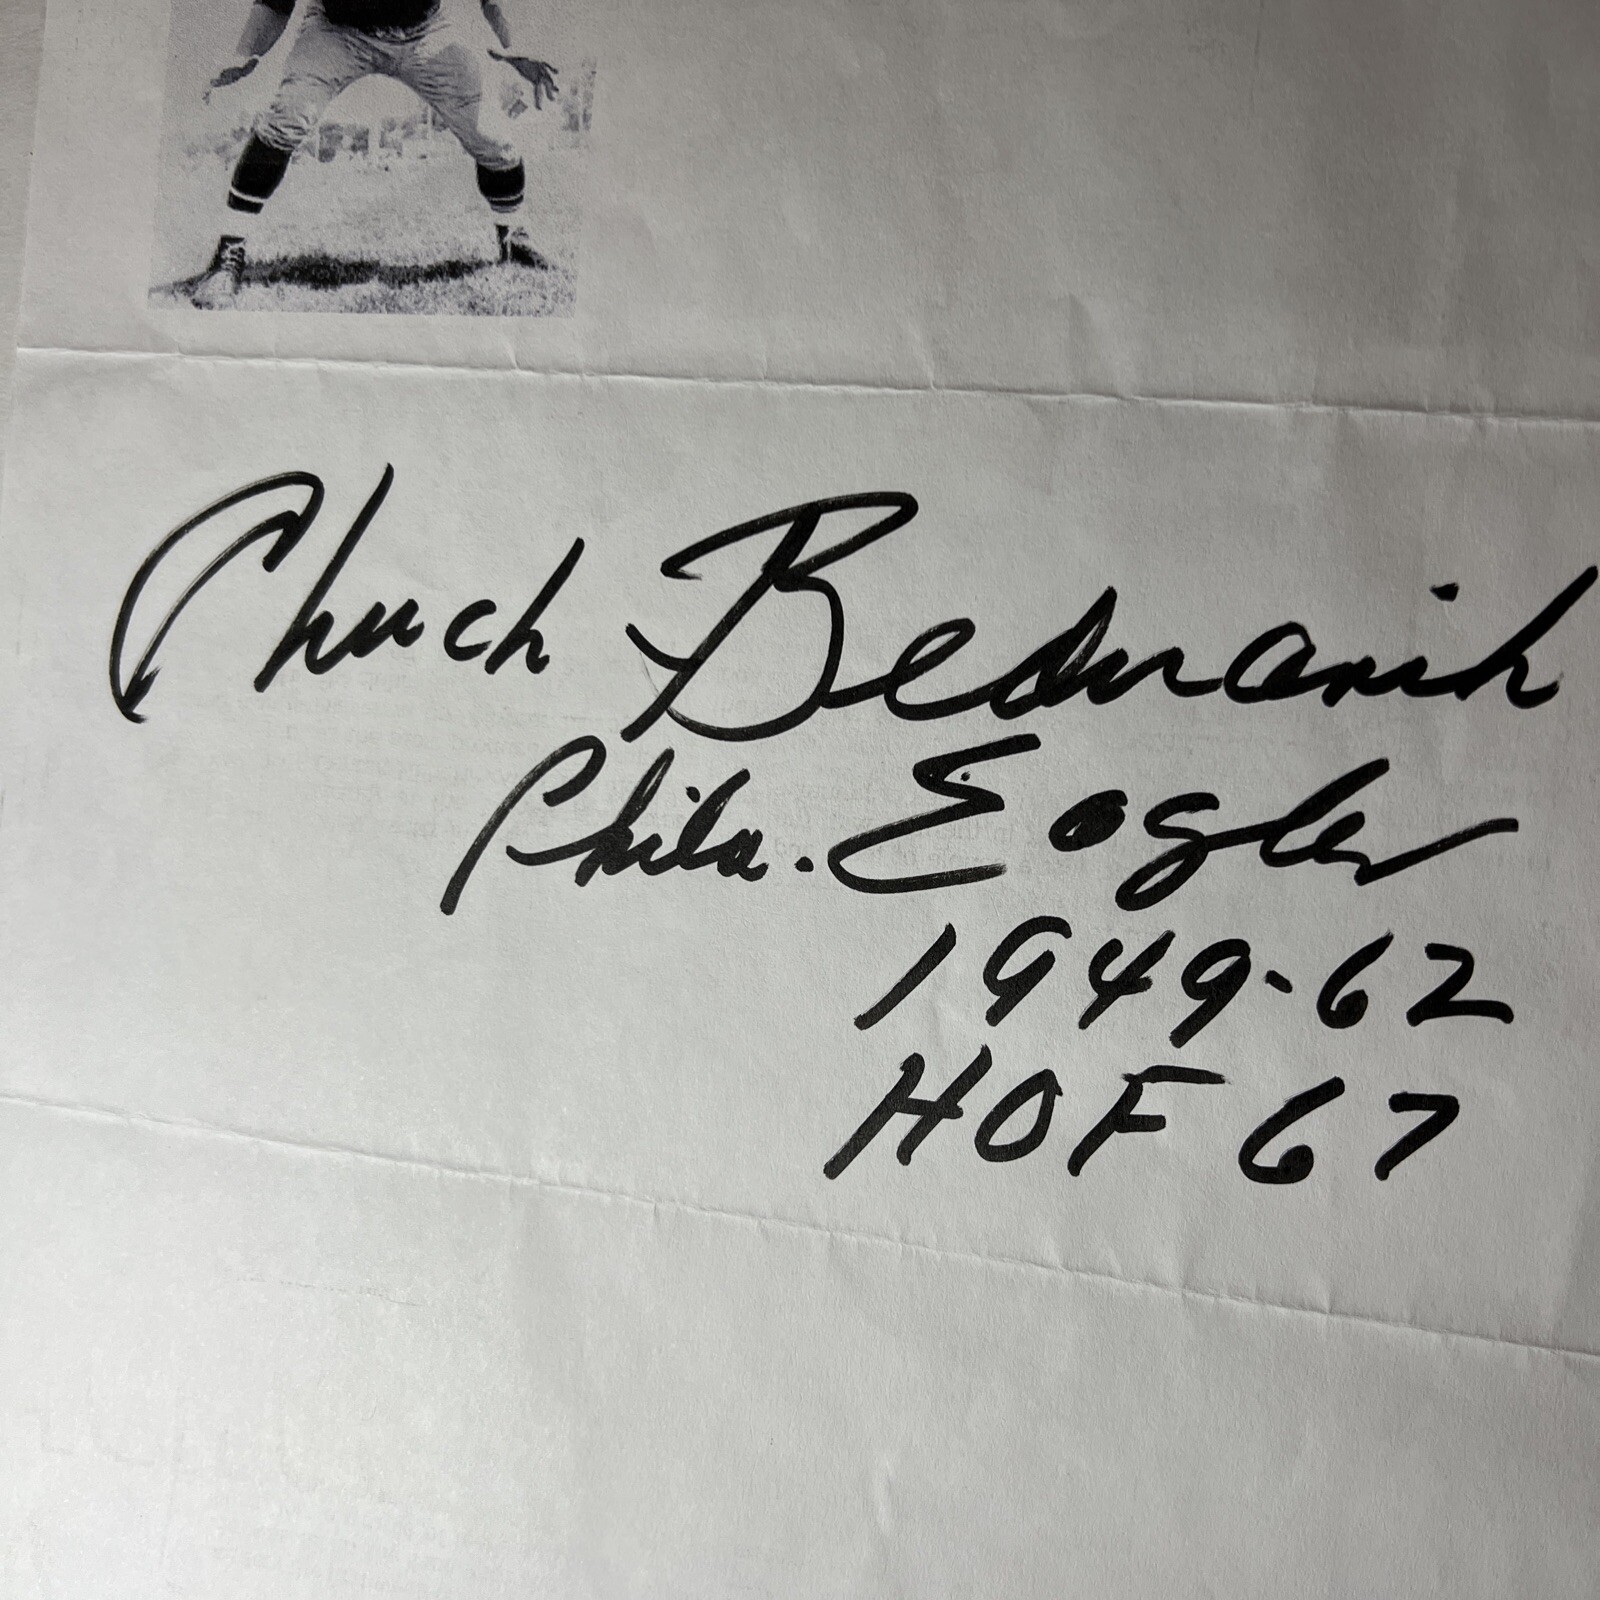 Chuck Bednarik
Phila. Eagles
1949-62
HOF 67